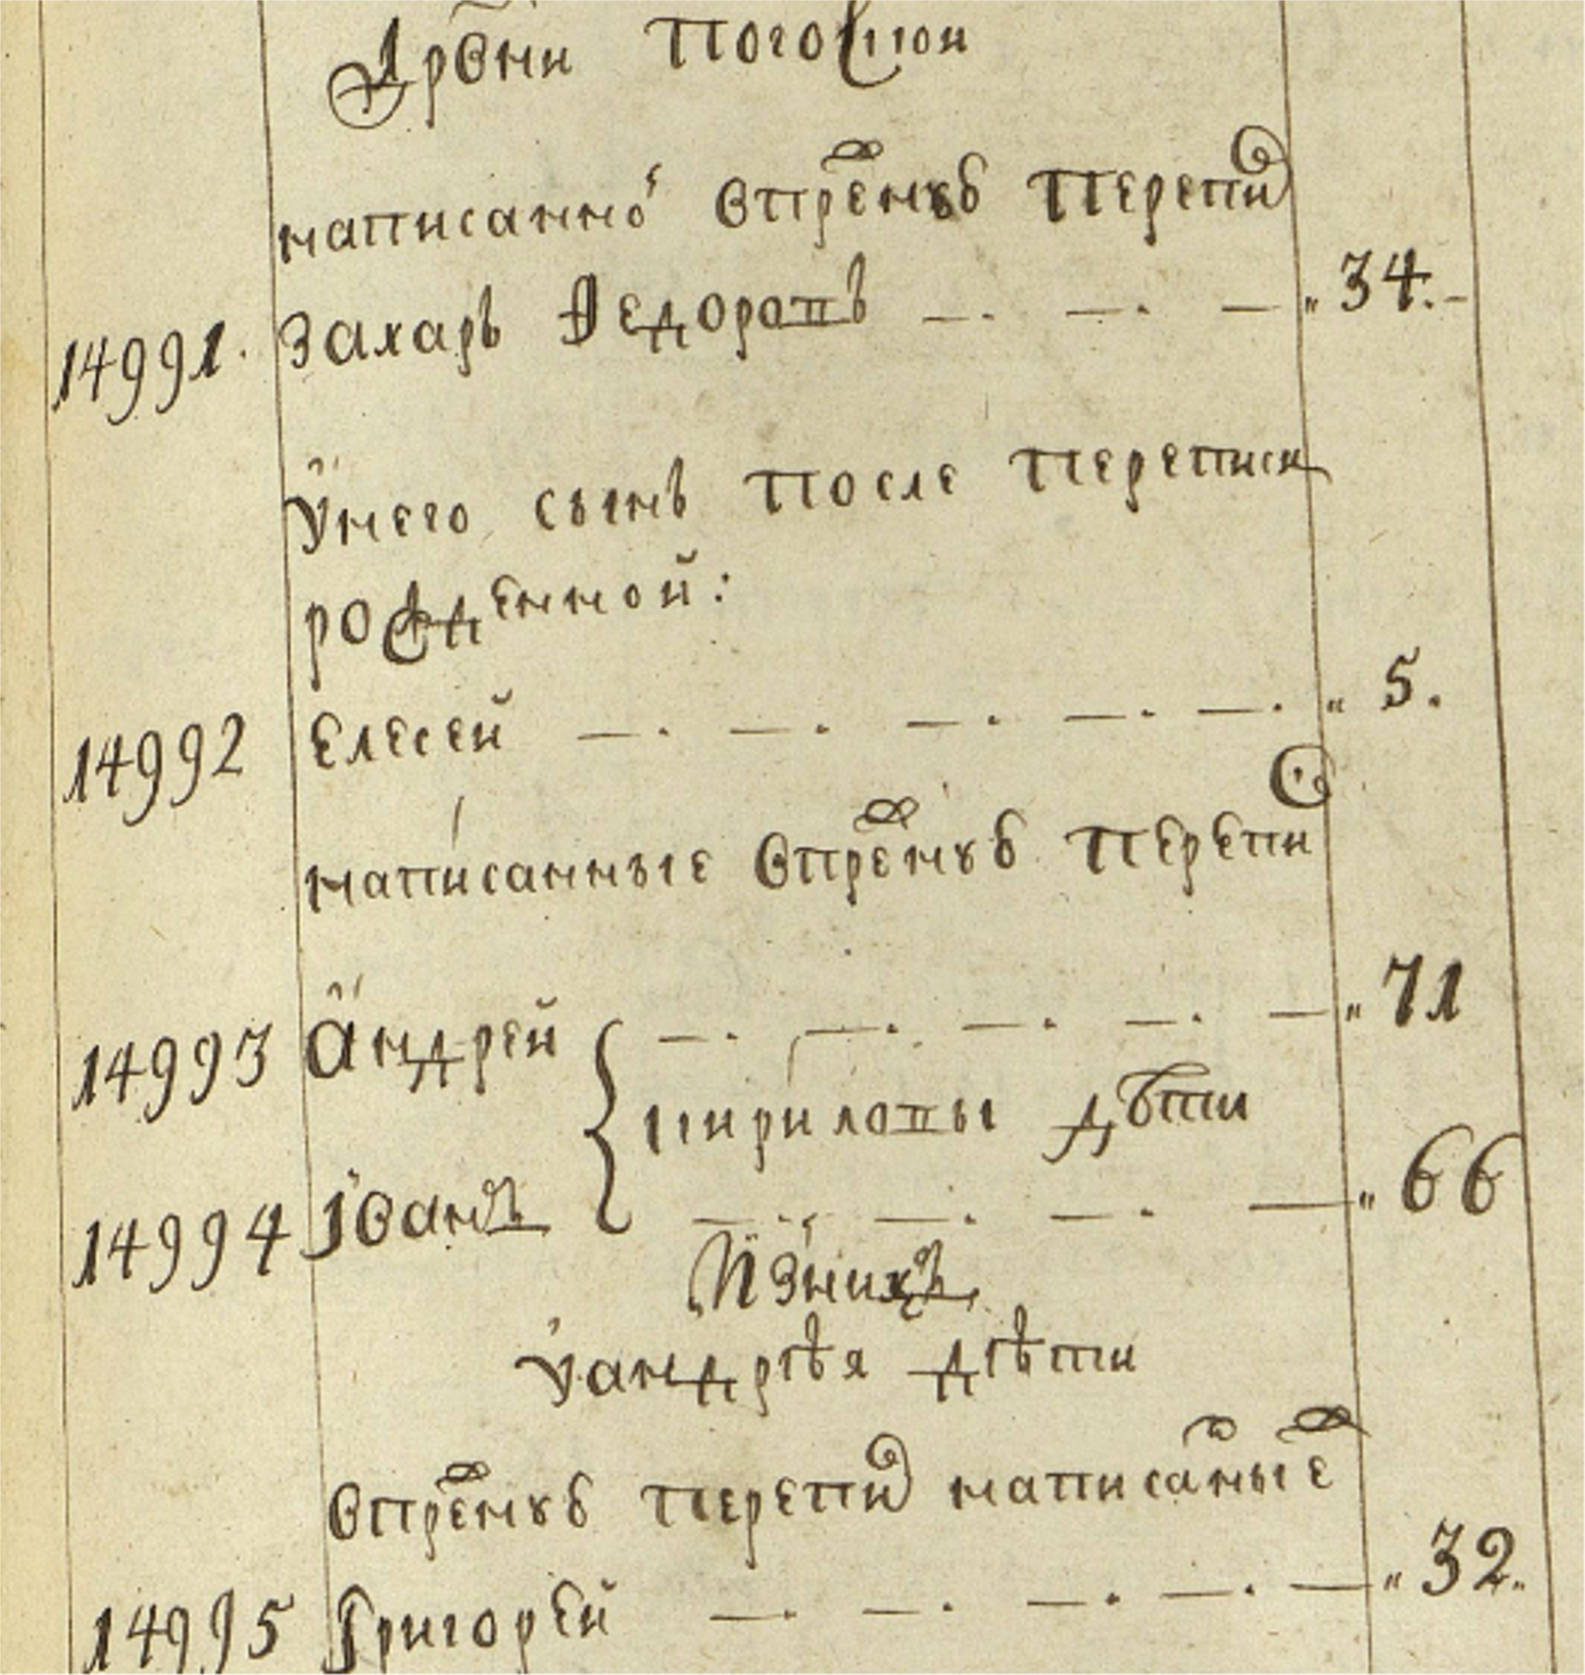 Дрвни Погоскои
написанно въпрежнюю перепис
14991. Захаръ Ѳедоровъ — . — . — „ 34. –
Ӱнего сынъ после переписи
рожденной:
14992 Елесей — . — . — . — . — . „ 5.
написанные впрежнюю перепис
14993 Андрей — . — . — . — . — „ 71
кириловы дѣти
14994 Iванъ — . — . — . — „ 66
Изнихъ
ӱандрѣя дѣти
впрежнюю перепис написанные
14995 Григорей — . — . — . — . — „ 32.